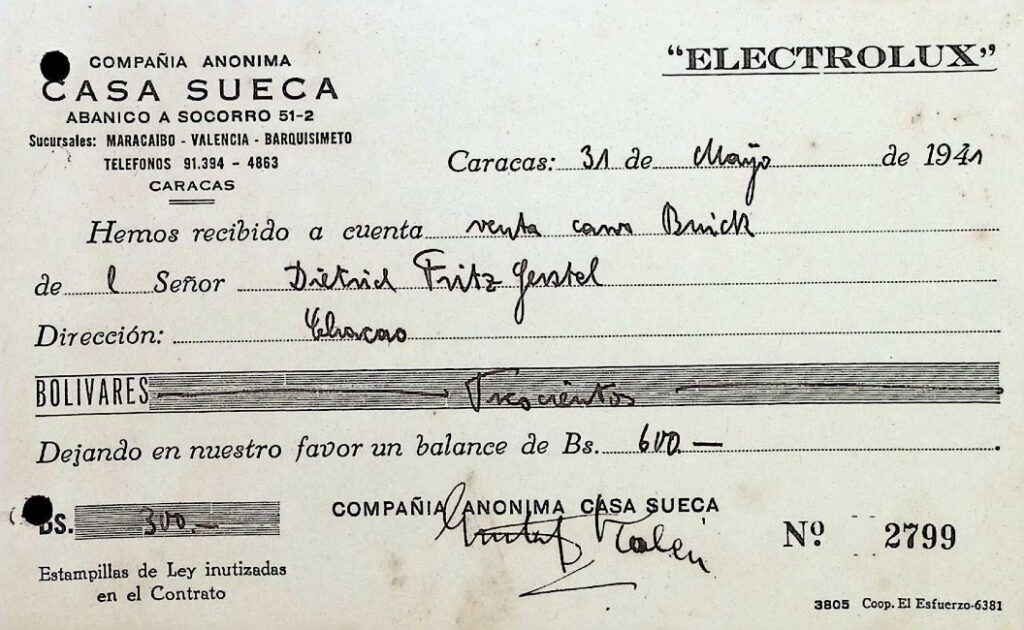 COMPAÑIA ANONIMA
CASA SUECA
ABANICO A SOCORRO 51-2
Sucursales: MARACAIBO - VALENCIA - BARQUISIMETO
TELEFONOS 91.394 - 4863
CARACAS
"ELECTROLUX"
Caracas: 31 de Mayo de 1941
Hemos recibido a cuenta venta carro Buick
de l Señor Dietrich Fritz Gerstel
Dirección: Chacao
BOLIVARES Trescientos
Dejando en nuestro favor un balance de Bs. 600.—
BS. 300.—
Estampillas de Ley inutizadas
en el Contrato
COMPAÑIA ANONIMA CASA SUECA
Nº 2799
3805 Coop. El Esfuerzo-6381